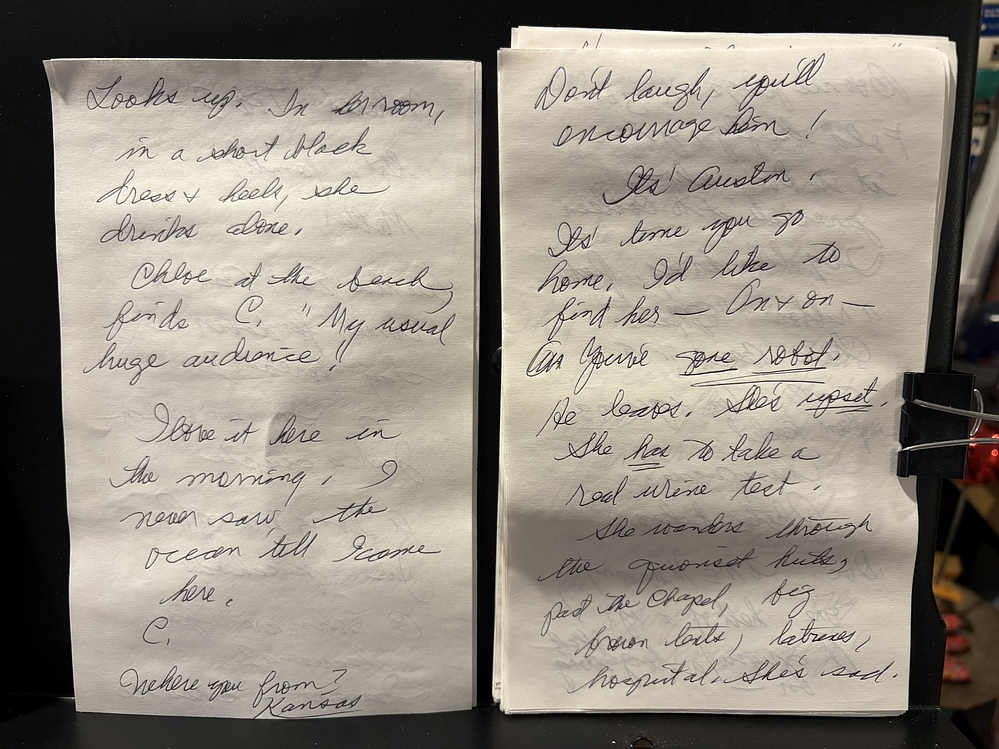 Looks up. In her room,
in a short black
dress & heels, she
drinks alone.
Chloe at the beach,
finds C. "My usual
huge audience!
I love it here in
the morning. I
never saw the
ocean till I came
here.
C.
Where you from?
Kansas
Don't laugh, you'll
encourage him!
Its' Austin.
Its' time you go
home. I'd like to
find her — On & on —
You've gone robot.
He leaves. She's upset.
She has to take a
real urine test.
She wanders through
the quonset huts,
past the chapel, big
brown tents, latrines,
hospital. She's sad.